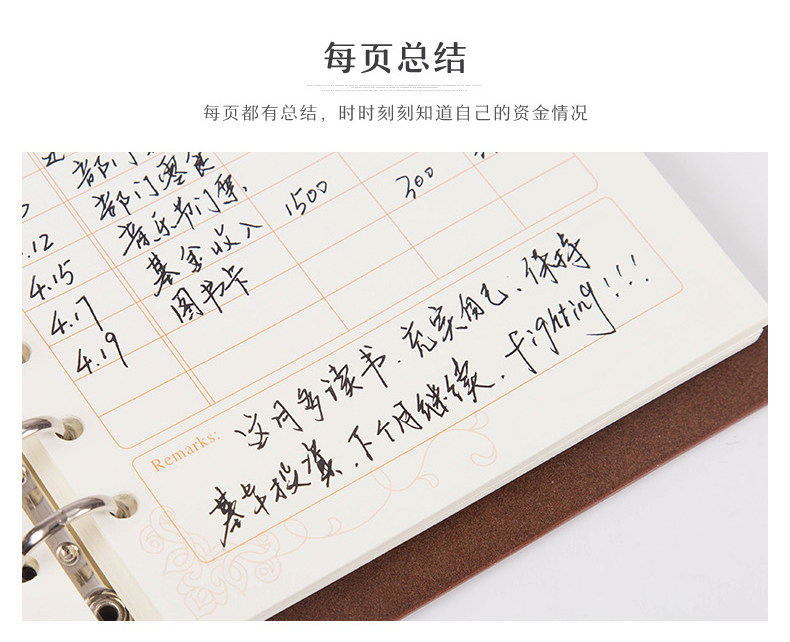 每页总结
每页都有总结，时时刻刻知道自己的资金情况
部门
部门零食
.12 音乐节门票
4.15 基金收入 1500 300
4.17 图书卡
4.19
Remarks: 这月多读书、充实自己、保持
基本投资、下个月继续、fighting!!!